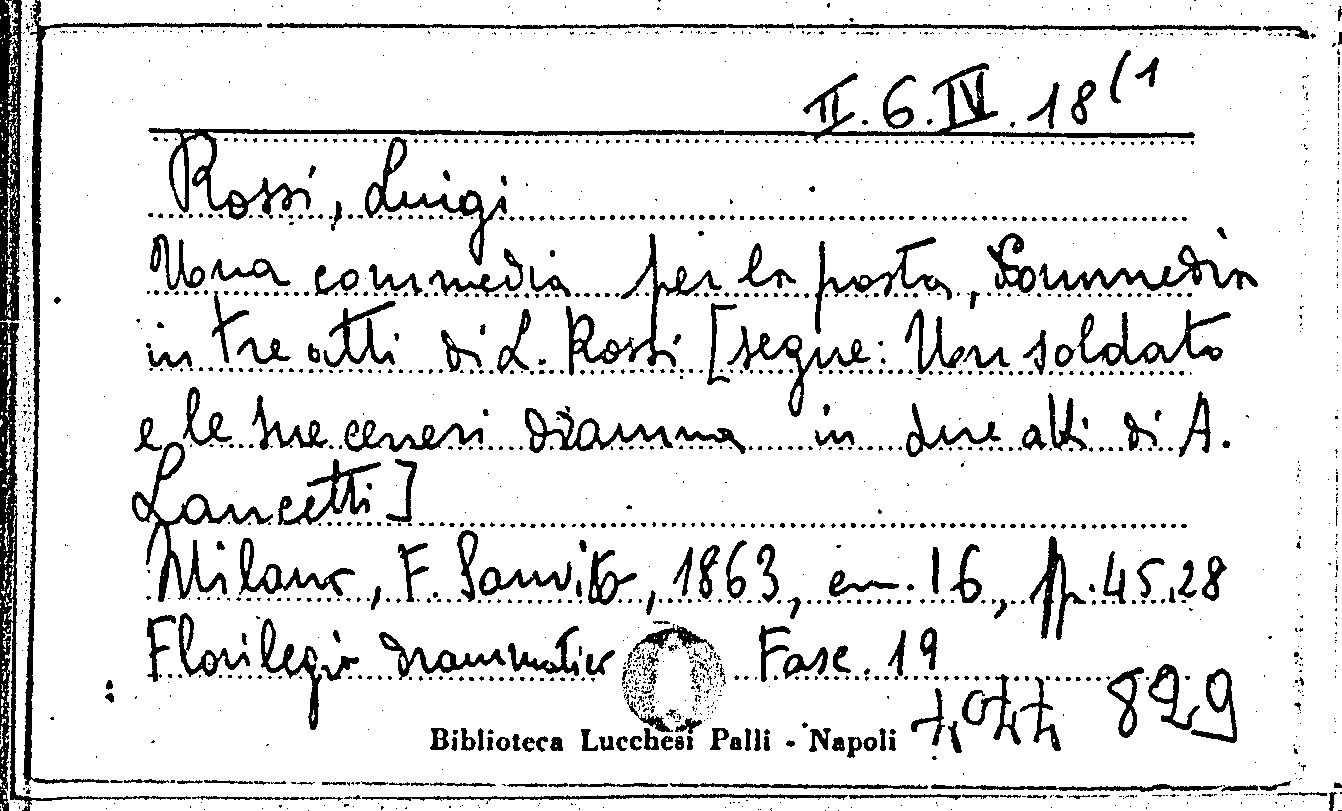 II. 6. IV. 18 (1
Rossi, Luigi
Una commedia per la posta, Commedia
in tre atti di L. Rossi [segue: Un soldato
e le sue dramma in due atti di A.
Lancetti]
Milano, F. Sanvito, 1863, cm. 16, pp. 45, 28
Florilegio drammatico Fasc. 19
829
Biblioteca Lucchesi Palli - Napoli